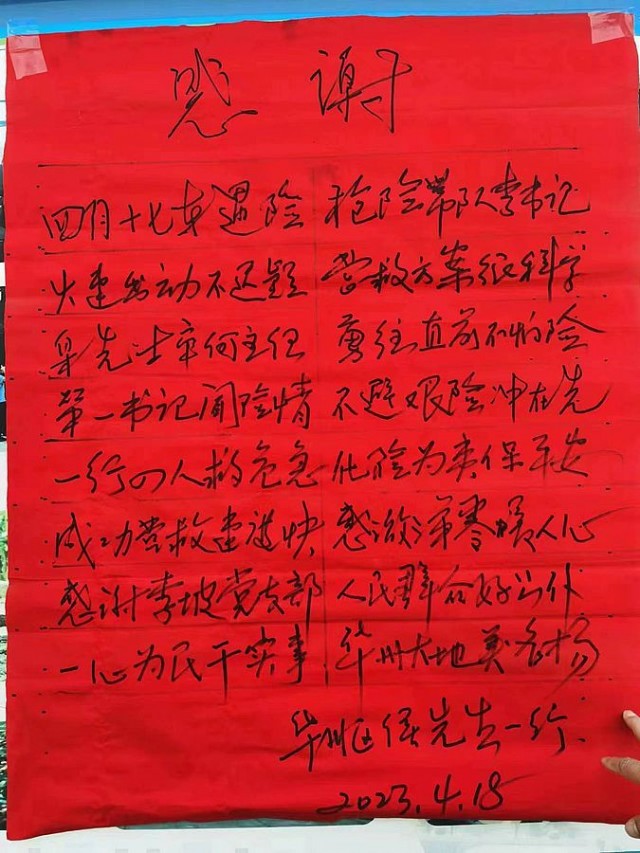 感谢
四月十七车遇险 抢险带队李书记
火速出动不迟疑 营救方案很科学
身先士卒何主任 勇往直前不怕险
第一书记闻险情 不避艰险冲在先
一行四人救危急 化险为夷保平安
成功营救速度快 感激涕零暖人心
感谢李坡党支部 人民群众好公仆
一心为民干实事 华州大地美名扬
华州区侯先生一行
2023.4.18